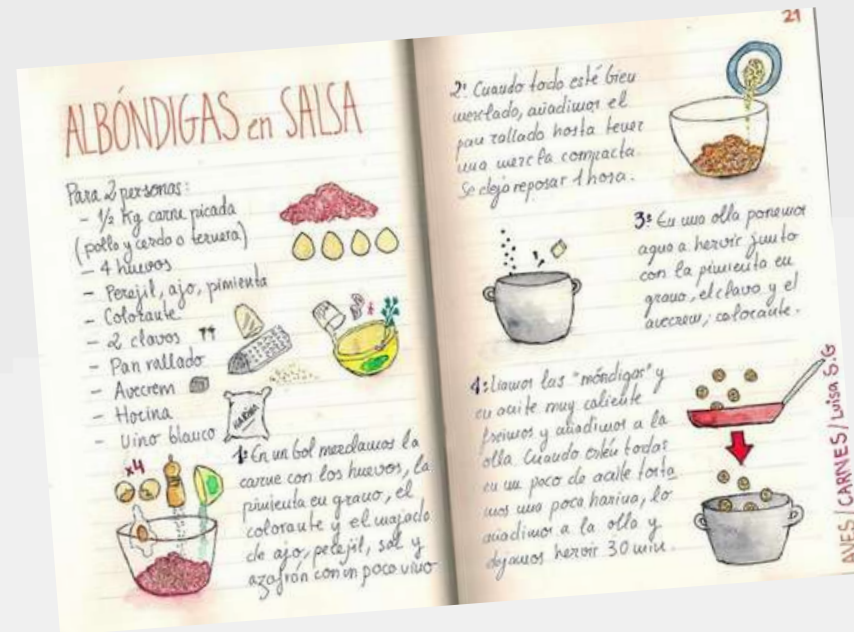 ALBÓNDIGAS en SALSA
Para 2 personas:
- 1/2 Kg carne picada
(pollo y cerdo o ternera)
- 4 huevos
- Perejil, ajo, pimienta
- Colorante
- 2 clavos
- Pan rallado
- Avecrem
- Harina
- Vino blanco
HARINA
x4
1º En un bol mezclamos la
carne con los huevos, la
pimienta en grano, el
colorante y el majado
de ajo, perejil, sal y
azafrán con un poco vino
21
2º Cuando todo esté bien
mezclado, añadimos el
pan rallado hasta tener
una mezcla compacta.
Se deja reposar 1 hora.
3º En una olla ponemos
agua a hervir junto
con la pimienta en
grano, el clavo y el
avecrem, colorante.
4º Liamos las "móndigas" y
en aceite muy caliente
freimos y añadimos a la
olla. Cuando estén todas
en un poco de aceite tosta
mos una poca harina, lo
añadimos a la olla y
dejamos hervir 30 min.
AVES / CARNES / Luisa S.G